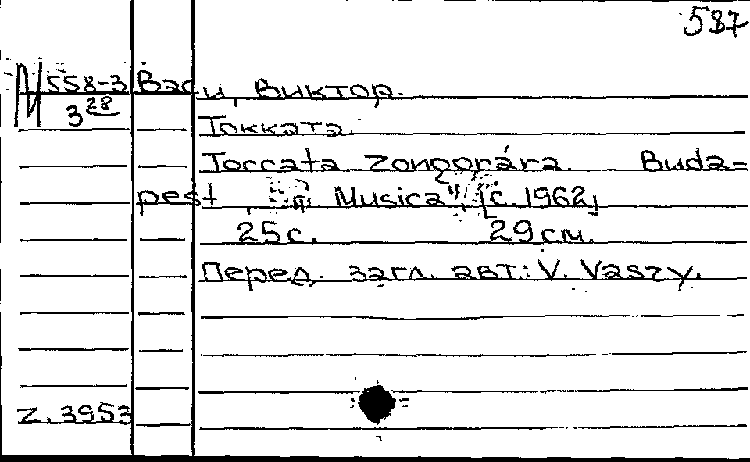 587
М 558-3 Васи, Виктор.
3 28
Токката.
Toccata zongorára. Buda-
pest, „ Musica", [c. 1962]
25 с. 29 см.
Перед загл. авт.: V. Vaszy.
Z. 3953